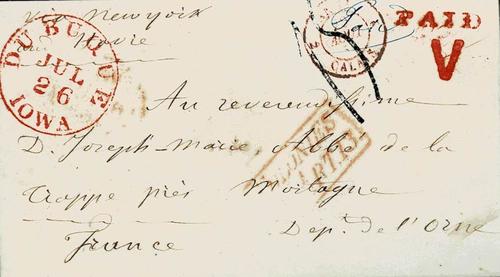 via Newyork
Havre
DUBUQUE
JUL
26
IOWA
CALAIS
PAID
V
Au reverendissime
D. Joseph-Marie, Abbé de la
COLONIES
ART.13
Trappe près Mortagne
Dept. de l'Orne
France